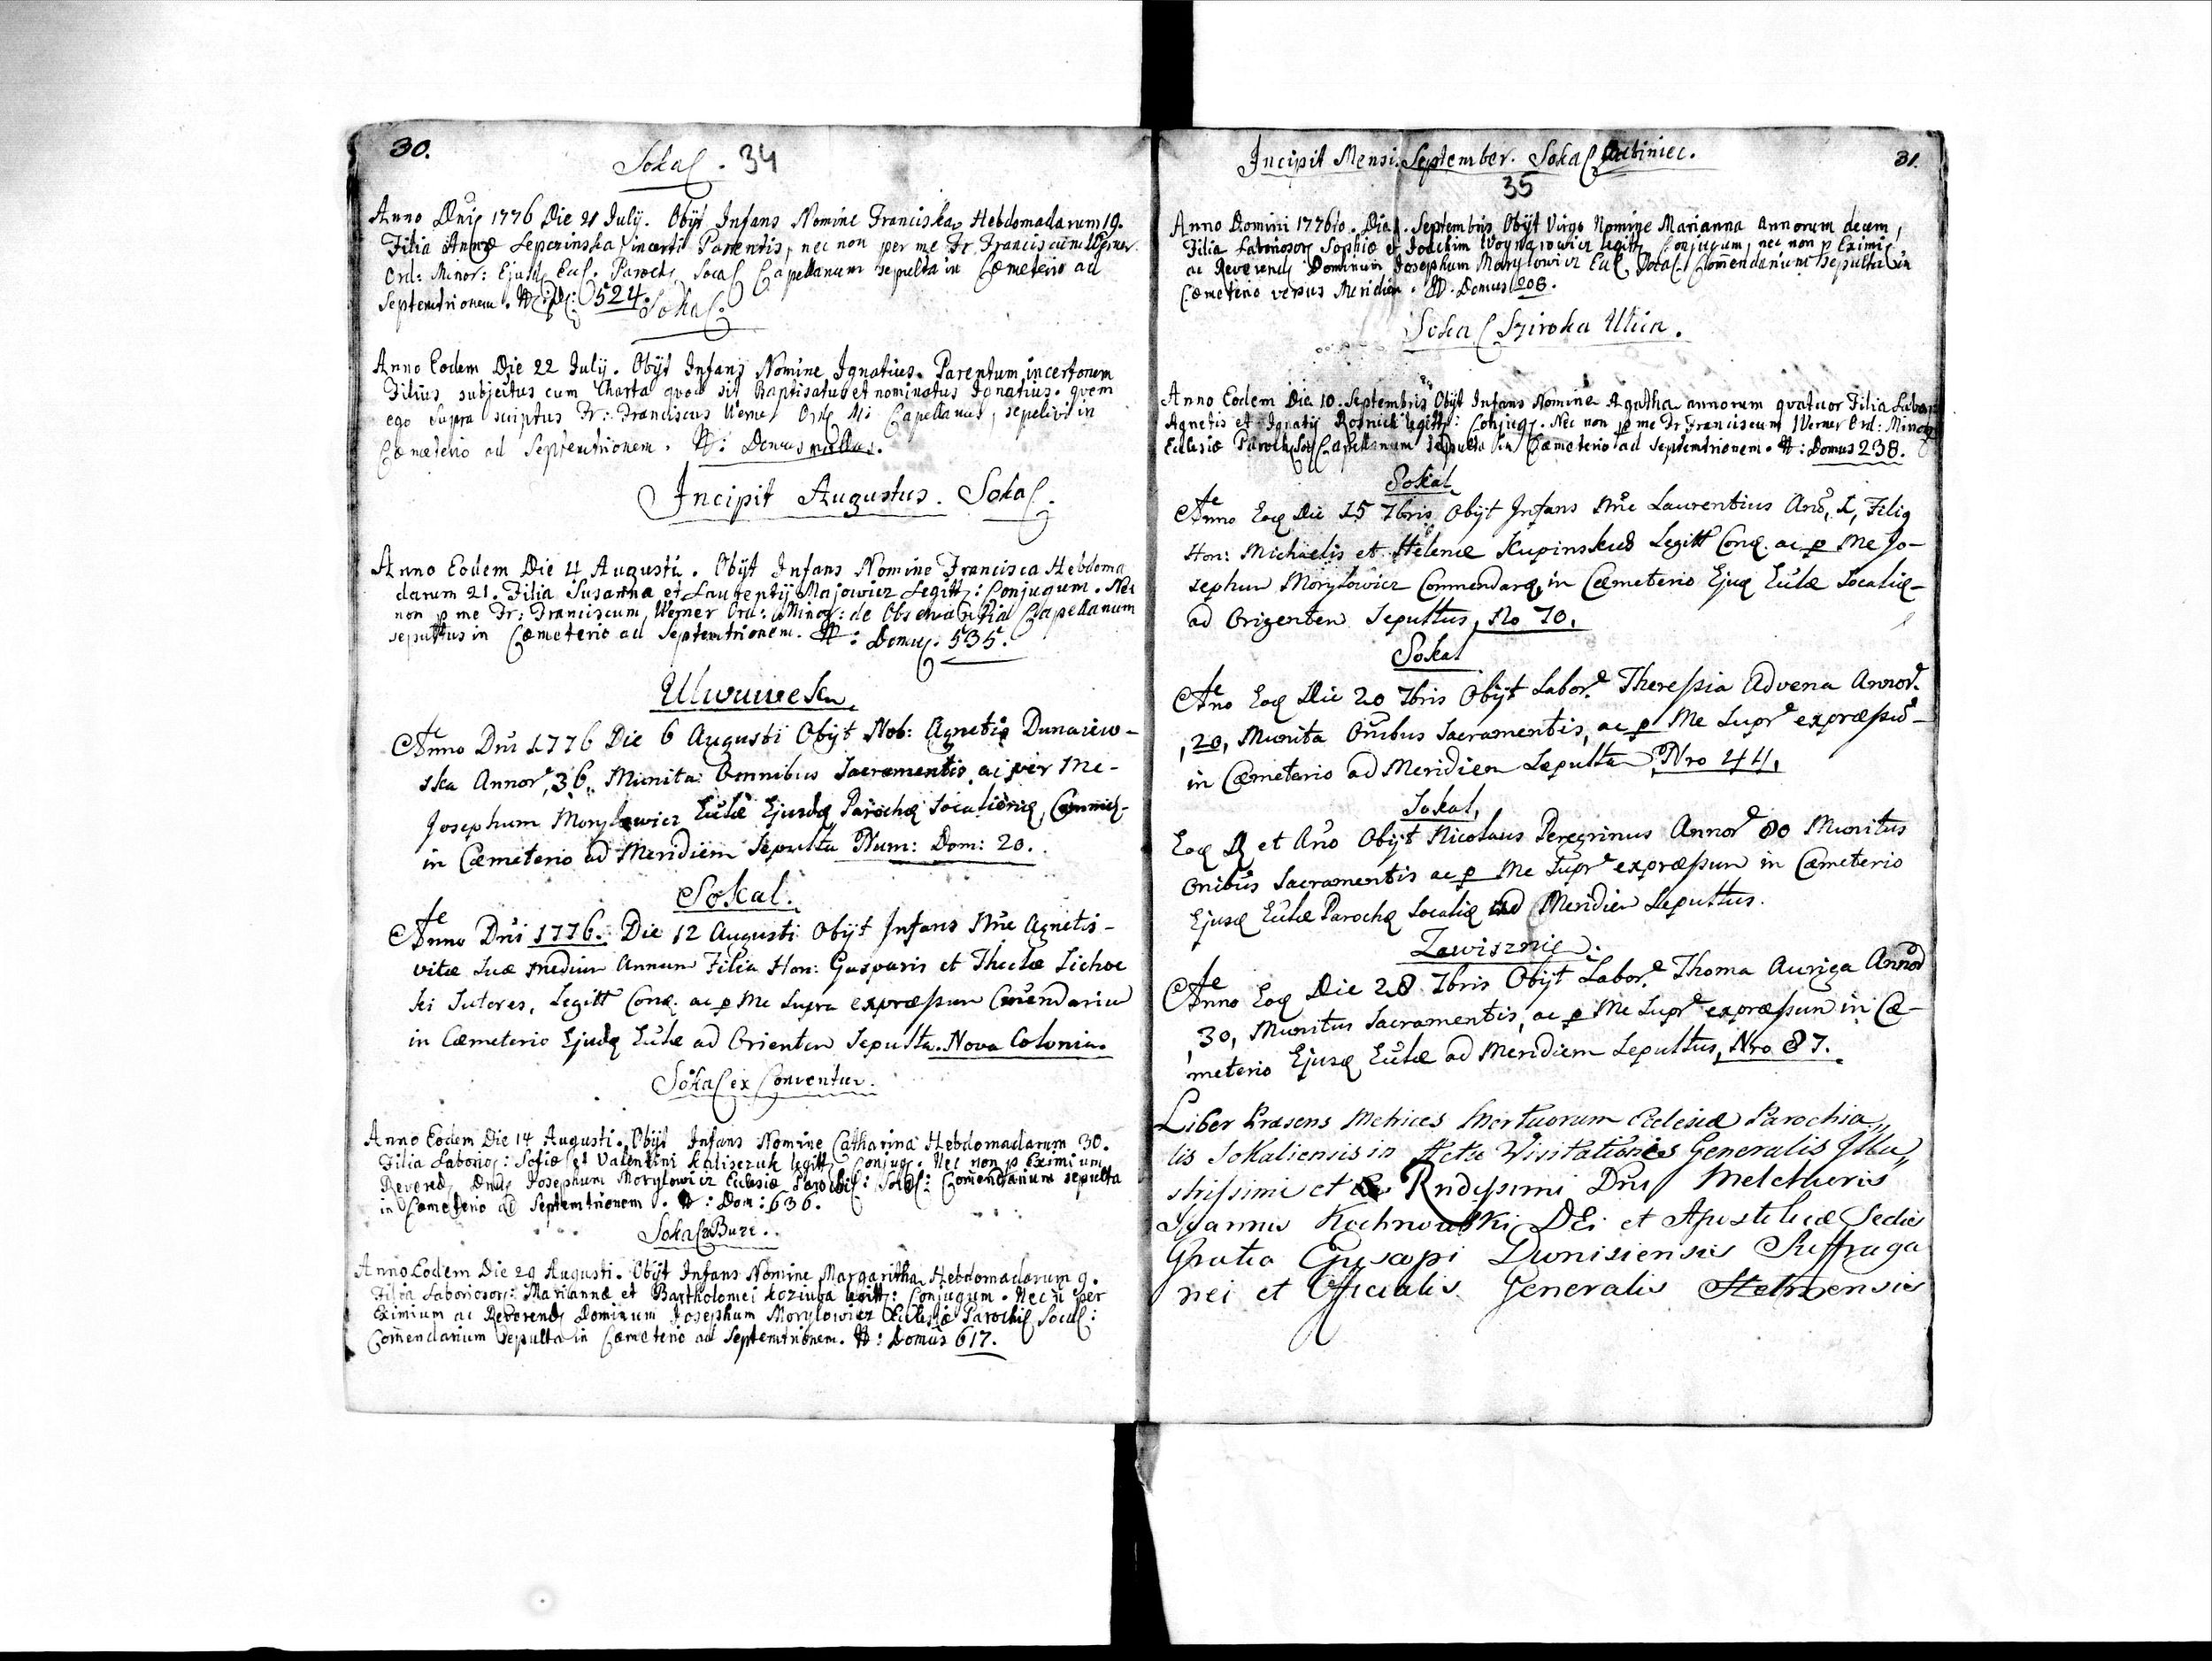 30.
Sokal. 34
Anno Dni 1776 Die 21 July. Obijt Infans Nomine Franciska Hebdomadarum 19.
Filia Annæ Lepczinska incerti Parentis, nec non per me Fr. Franciscum Werner
Ord: Minor: Ejusd Ecl. Paroch Socal Capellanum sepulta in Cæmeterio ad
Septemtrionem. 524.
Sokal.
Anno Eodem Die 22 July. Obijt Infans Nomine Ignatius. Parentum incertorum
Filius subjectus cum Charta quod sit Baptisatus et nominatus Ignatius. quem
ego supra scriptus Fr: Franciscus Werner Ord M: Capellanus, sepelivi in
Cæmeterio ad Septemtrionem. N: Domus nullus.
Incipit Augustus. Sokal.
Anno Eodem Die 4 Augusti. Obijt Infans Nomine Francisca Hebdoma
darum 21. Filia Susanna et Laurentij Majowicz Legitt: Conjugum. Nec
non p me Fr: Franciscum Werner Ord: Minor: de Observantia Capellanum
sepultus in Cæmeterio ad Septemtrionem. N: Domus. 535.
Anno Dni 1776 Die 6 Augusti Obijt Nob: Agnetis Dunaiew-
ska Annor 36, Munita Omnibus Sacramentis ac per Me-
Josephum Morylowicz Eccle Ejusdq Parochq Socaliensq
in Cæmeterio ad Meridiem Sepulta Num: Dom: 20.
Sokal.
Anno Dni 1776. Die 12 Augusti Obijt Infans Nne Agnetis-
vitæ suæ medium Annum Filia Hon: Gasparis et Theclæ Lichoc
ki Sutores, Legitt Conq. ac p Me Supra expræssum Comendariu
in Cæmeterio Ejudq Eclæ ad Orientem Sepulta. Nova Colonia.
Sokal ex Conventu.
Anno Eodem Die 14 Augusti. Obijt Infans Nomine Catharina Hebdomadarum 30.
Filia Laborios: Sofiæ et Valentini Kaliszczuk legitt Conjug. Nec non p Eximium
Reverend Dnum Josephum Morylowicz Eclesiæ Parochi: Socal: Comendarium sepulta
in Cæmeterio ad Septemtrionem. N: Dom: 636.
Anno Eodem Die 29 Augusti. Obijt Infans Nomine Margaritha Hebdomadarum 9.
Filia Laboriosor: Mariannæ et Bartholomei Koziuba legitt: Conjugum. Nec n per
Eximium ac Reverend Dominum Josephum Morylowicz Eclesiæ Parochi Socal:
Comendarium sepulta in Cæmeterio ad Septemtrionem. N: Domus 617.
Incipit Mensi. September. Sokal Babiniec.
31.
35
Anno Domini 1776to. Die 1. Septembris Obijt Virgo Nomine Marianna Annorum decem,
Filia Laboriosor Sophiæ et Joachim Woynarowicz legitt Conjugum, nec non p Eximi
ac Reverend Dominum Josephum Morylowicz Ecl Socal: Commendarium sepulta in
Cæmeterio versus Meridiem. N. Domus 208.
Sokal Sziroka Ulica.
Anno Eodem Die 10. Septembris Obijt Infans Nomine Agatha annorum quatuor Filia Labor
Agnetis et Ignatij Rosnicki legitt: Conjug. Nec non p me Fr Franciscum Werner Ord: Minor
Eclesiæ Paroch Soc Capellanum sepulta in Cæmeterio ad Septemtrionem. N: Domus 238.
Sokal
Anno Eoq Die 15 7bris Obijt Infans Nne Laurentius Ano, 1, Filiq
Hon: Michaelis et Helenæ Kupinskieb Legitt Conq. ac p Me Jo-
sephum Morylowicz Commendarq, in Cæmeterio Ejuq Eclæ Socaliq-
ad Origentem Sepultus, No 70.
Sokal
Ano Eoq Die 20 7bris Obijt Labor. Theressia Advena Annor.
20, Munita Onibus Sacramentis, ac p Me Supr expræssu-
in Cæmeterio ad Meridiem Sepulta Nro 44.
Sokal,
Eoq D et Ano Obijt Nicolaus Peregrinus Annor 80 Munitus
Onibus Sacramentis ac p Me Supr expræssum in Cæmeterio
Ejusq Eclæ Parochq Socaliq ad Meridiem Sepultus.
Zawisznie.
Anno Eoq Die 28 7bris Obijt Labor. Thoma Auriga Annor
30, Munitus Sacramentis, ac p Me Supr expræssum in Cæ-
meterio Ejusq Eclæ ad Meridiem Sepultus, Nro 87.
Liber Præsens Metrices Mortuorum Ecclesiæ Parochia
lis Sokaliensis in Actu Visitationis Generalis Illu
strissimi et Rndissimi Dni Melchioris
Joannis Kochnowski DEi et Apostolicæ Sedis
Gratia Episcopi Dionisiensis Suffraga
nei et Officialis Generalis Chelmensis